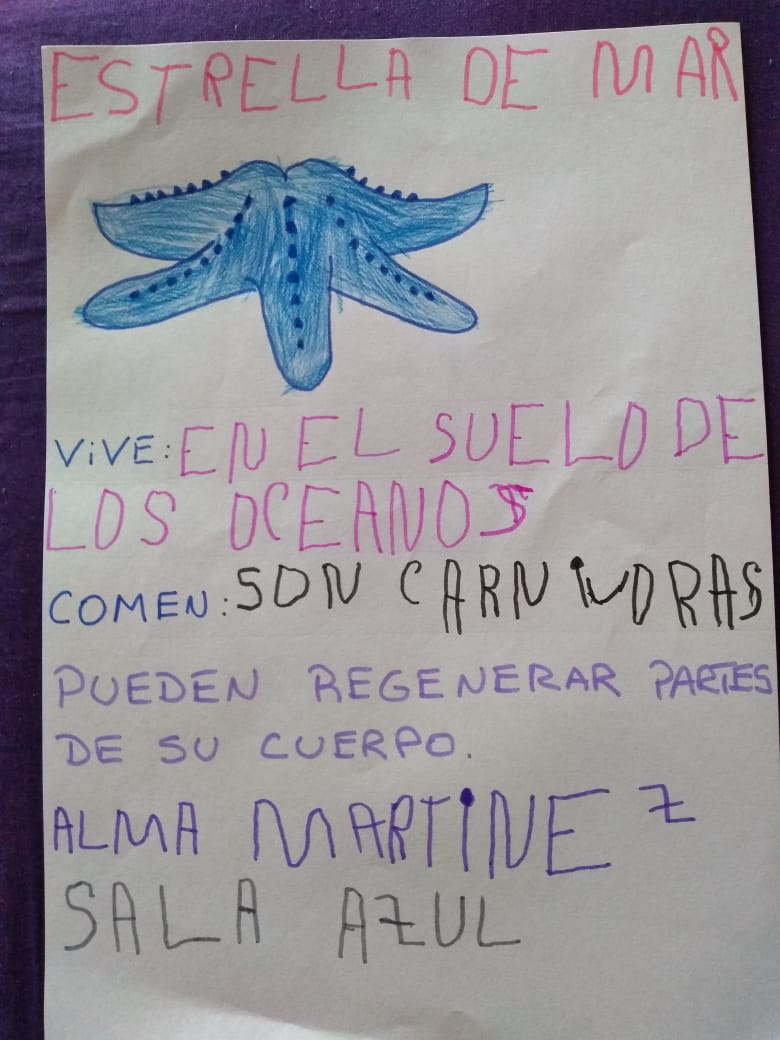 ESTRELLA DE MAR
ViVE: EN EL SUELO DE
LOS OCEANOS
COMEN: SON CARNIVORAS
PUEDEN REGENERAR PARTES
DE SU CUERPO.
ALMA MARTiNEZ
SALA AZUL